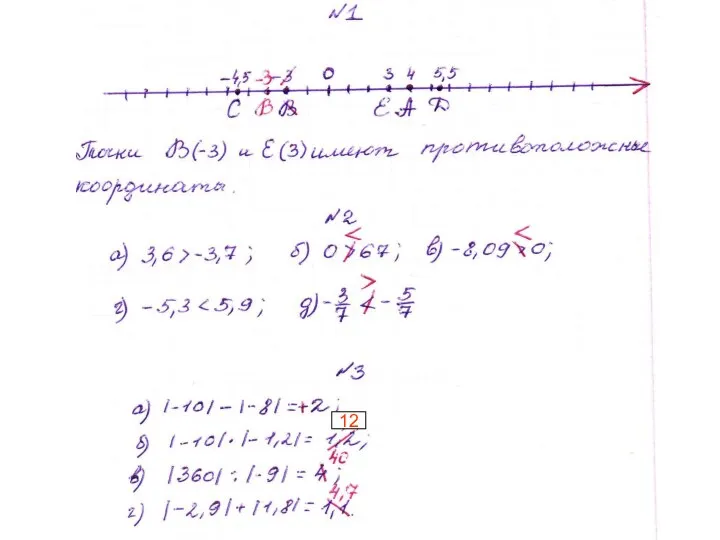 №1
-4,5 -3 -3 0 3 4 5,5
C B B E A D
Точки B(-3) и E(3) имеют противоположные
координаты.
№2
<
<
а) 3,6 > -3,7; б) 0 > 67; в) -8,09 > 0;
>
г) -5,3 < 5,9; д) -3/7 < -5/7
№3
а) |-10| - |-8| = +2;
12
б) |-10| · |-1,2| = 1,2;
40
в) |360| : |-9| = 4;
4,7
г) |-2,9| + |1,8| = 1,1.